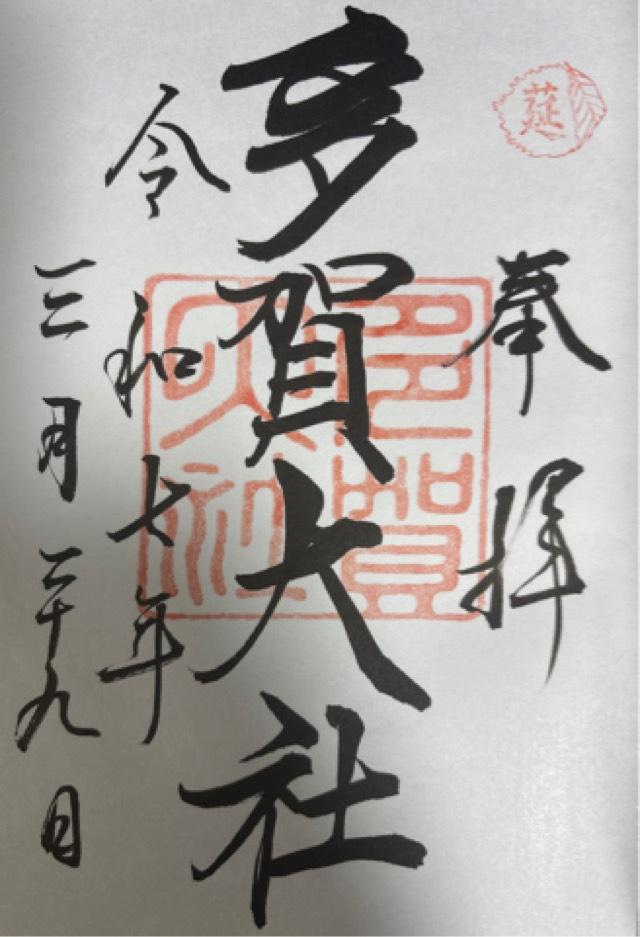 莚
奉拝
多賀大社
多賀大社
令和七年
三月二十九日